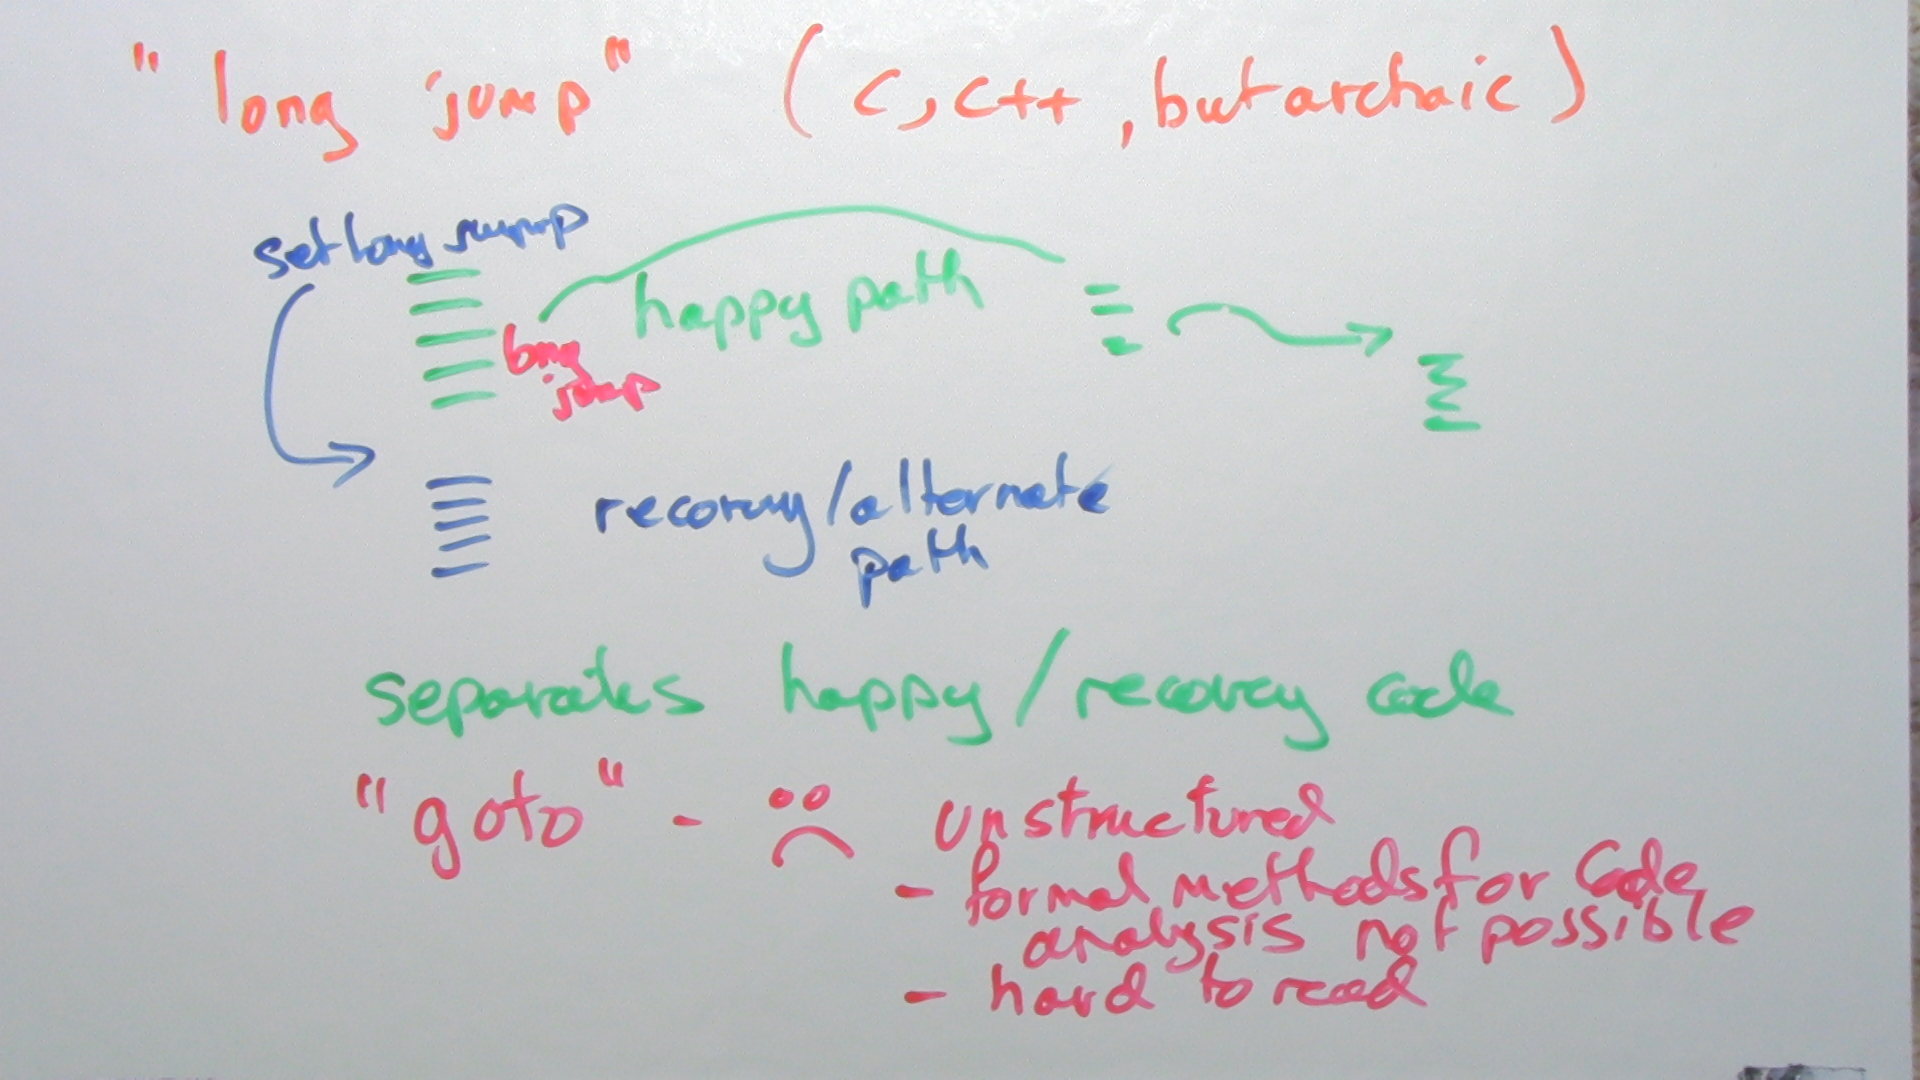 "long jump" (C, C++, but archaic)
set long jump
happy path
long
jump
recovery/alternate
path
separates happy/recovery code
"goto" - unstructured
- formal methods for code
analysis not possible
- hard to read